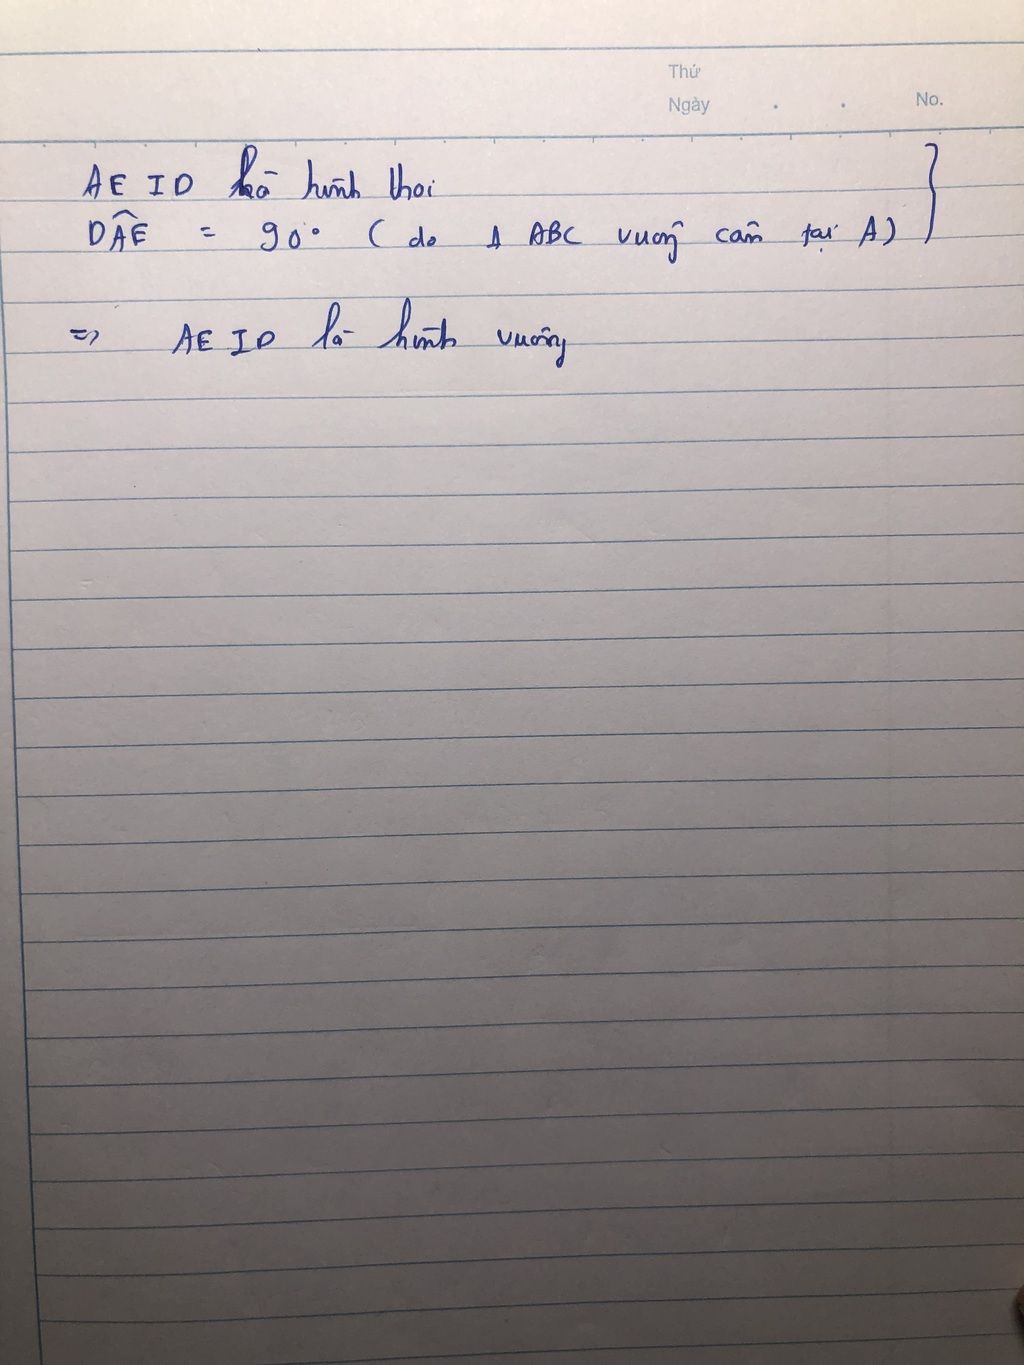 Thứ
Ngày . . No.
AEID là hình thoi
DÂE = 90° (do Δ ABC vuông cân tại A)
=> AEID là hình vuông